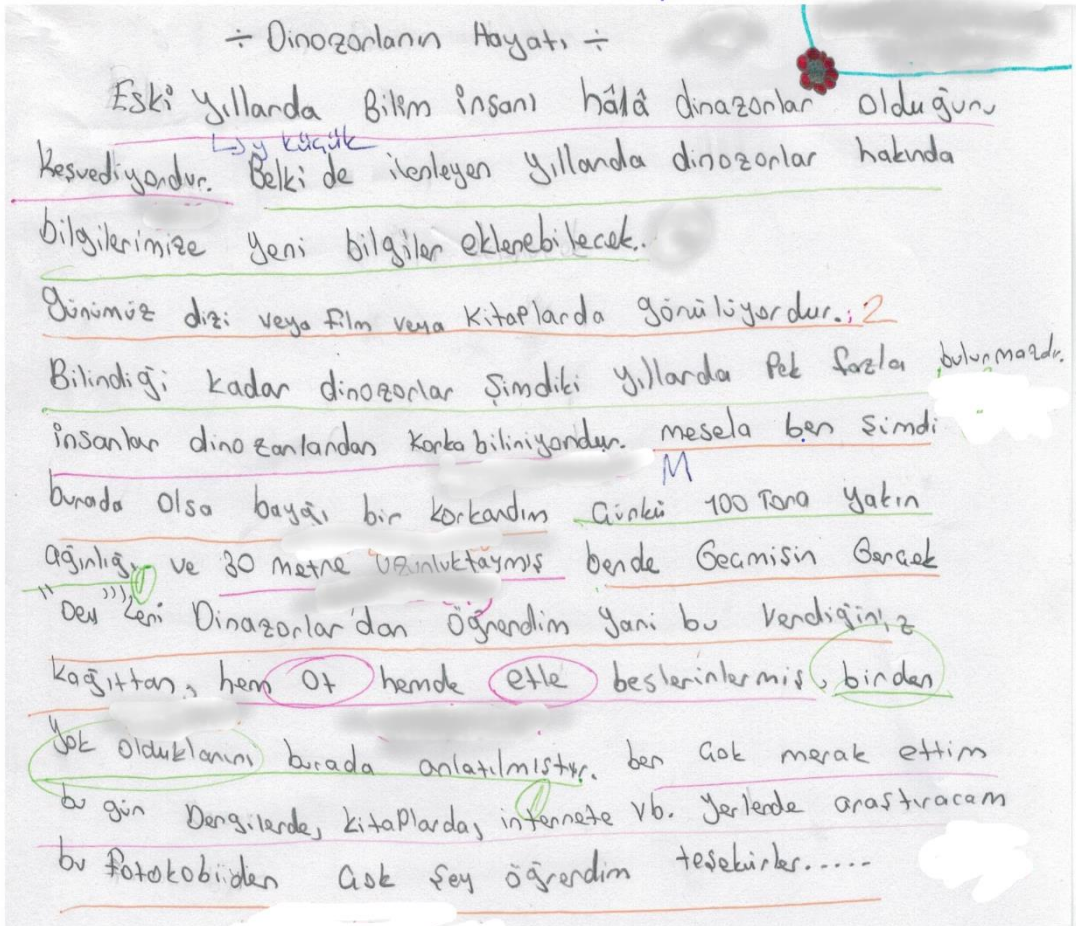 ÷ Dinozorların Hayatı ÷
Eski yıllarda Bilim insanı hâlâ dinazorlar olduğunu
↳ y küçük
keşvediyordur. Belki de ilerleyen yıllarda dinozorlar hakında
bilgilerimize yeni bilgiler eklenebilecek..
günümüz dizi veya film veya kitaplarda görülüyordur.; 2
Bilindiği kadar dinozorlar Şimdiki yıllarda Pek fazla bulunmazdı.
insanlar dinozarlardan korkabiliriyordur. mesela ben şimdi
M
burada olsa bayağı bir korkardım Çünkü 100 Tona yakın
ağırlığı ve 30 metre uzunluktaymış bende Geçmişin Gerçek
"Dev" leri Dinazorlar'dan Öğrendim yani bu Verdiğiniz
kağıttan, hem ot hemde etle beslerinlermiş, birden
Yok olduklarını burada anlatılmıştır. ben çok merak ettim
bu gün Dergilerde, kitaplarda, internete vb. yerlerde araştıracam
bu fotokobiiden çok şey öğrendim teşekürler.....